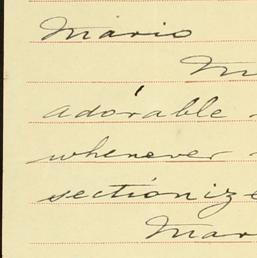 Mario
adorable
whenever
sectionize
Mar